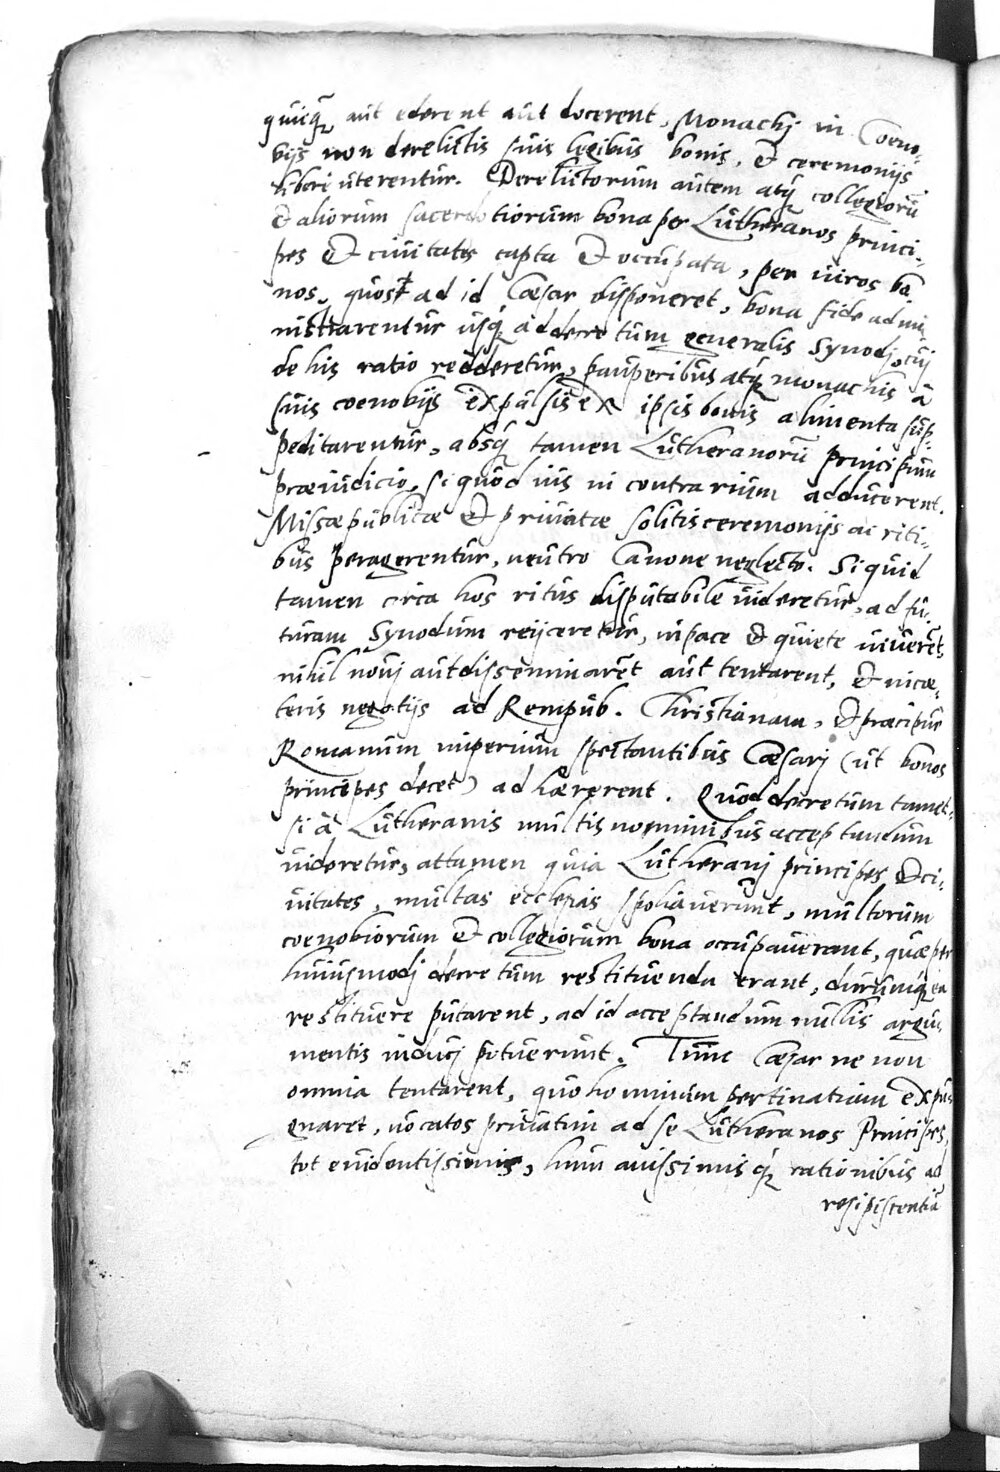 quicq́ꝫ aut ederent aut docerent, Monachj in Coeno-
bijs non derelictis suis legibus bonis, & ceremonijs
liberè uterentur. Derelictorum autem atq́ꝫ collegiorū
& aliorum sacerdotiorum bona per Lutheranos princi-
pes & ciuitates capta & occupata, per uiros bo-
nos, quos ad id Cæsar disponeret, bona fide admi-
nistrarentur usq́ꝫ ad decretum generalis Synodj, cuj
de his ratio redderetur, pauperibus atq́ꝫ monachis à
suis coenobijs expulsis ex ipsis bonis alimenta sup-
peditarentur, absq́ꝫ tamen Lutheranorū principum
præiudicio, si quod ius in contrarium adducerent.
Missæ publicæ & priuatæ solitis ceremonijs ac riti-
bus peragerentur, neutro Canone neglecto. Si quid
tamen circa hos ritus disputabile uideretur, ad fu-
turam Synodum reijceretur, in pace & quiete uiuerēt,
nihil nouj aut disseminarēt aut tentarent, & in cæ-
teris negotijs ad Rempub. Christianam, & præcipuè
Romanum imperium spectantibus Cæsarj (ut bonos
principes decet) adhærerent. Quod decretum tamet-
si à Lutheranis multis nominibus acceptandum
uideretur, attamen quia Lutheranj principes & ci-
uitates, multas ecclesias spoliauerunt, multorum
coenobiorum & collegiorum bona occupauerant, quæ per
huiusmodj decretum restituenda erant, durumq́ꝫ ea
restituere putarent, ad id acceptandum nullis argu-
mentis inducj potuerunt. Tunc Cæsar ne non
omnia tentarent, quo hominum pertinatiam expu-
gnaret, uocatos priuatim ad se Lutheranos Principes,
tot euidentissimis, humanissimisq́ꝫ rationibus ad
resipiscentiā